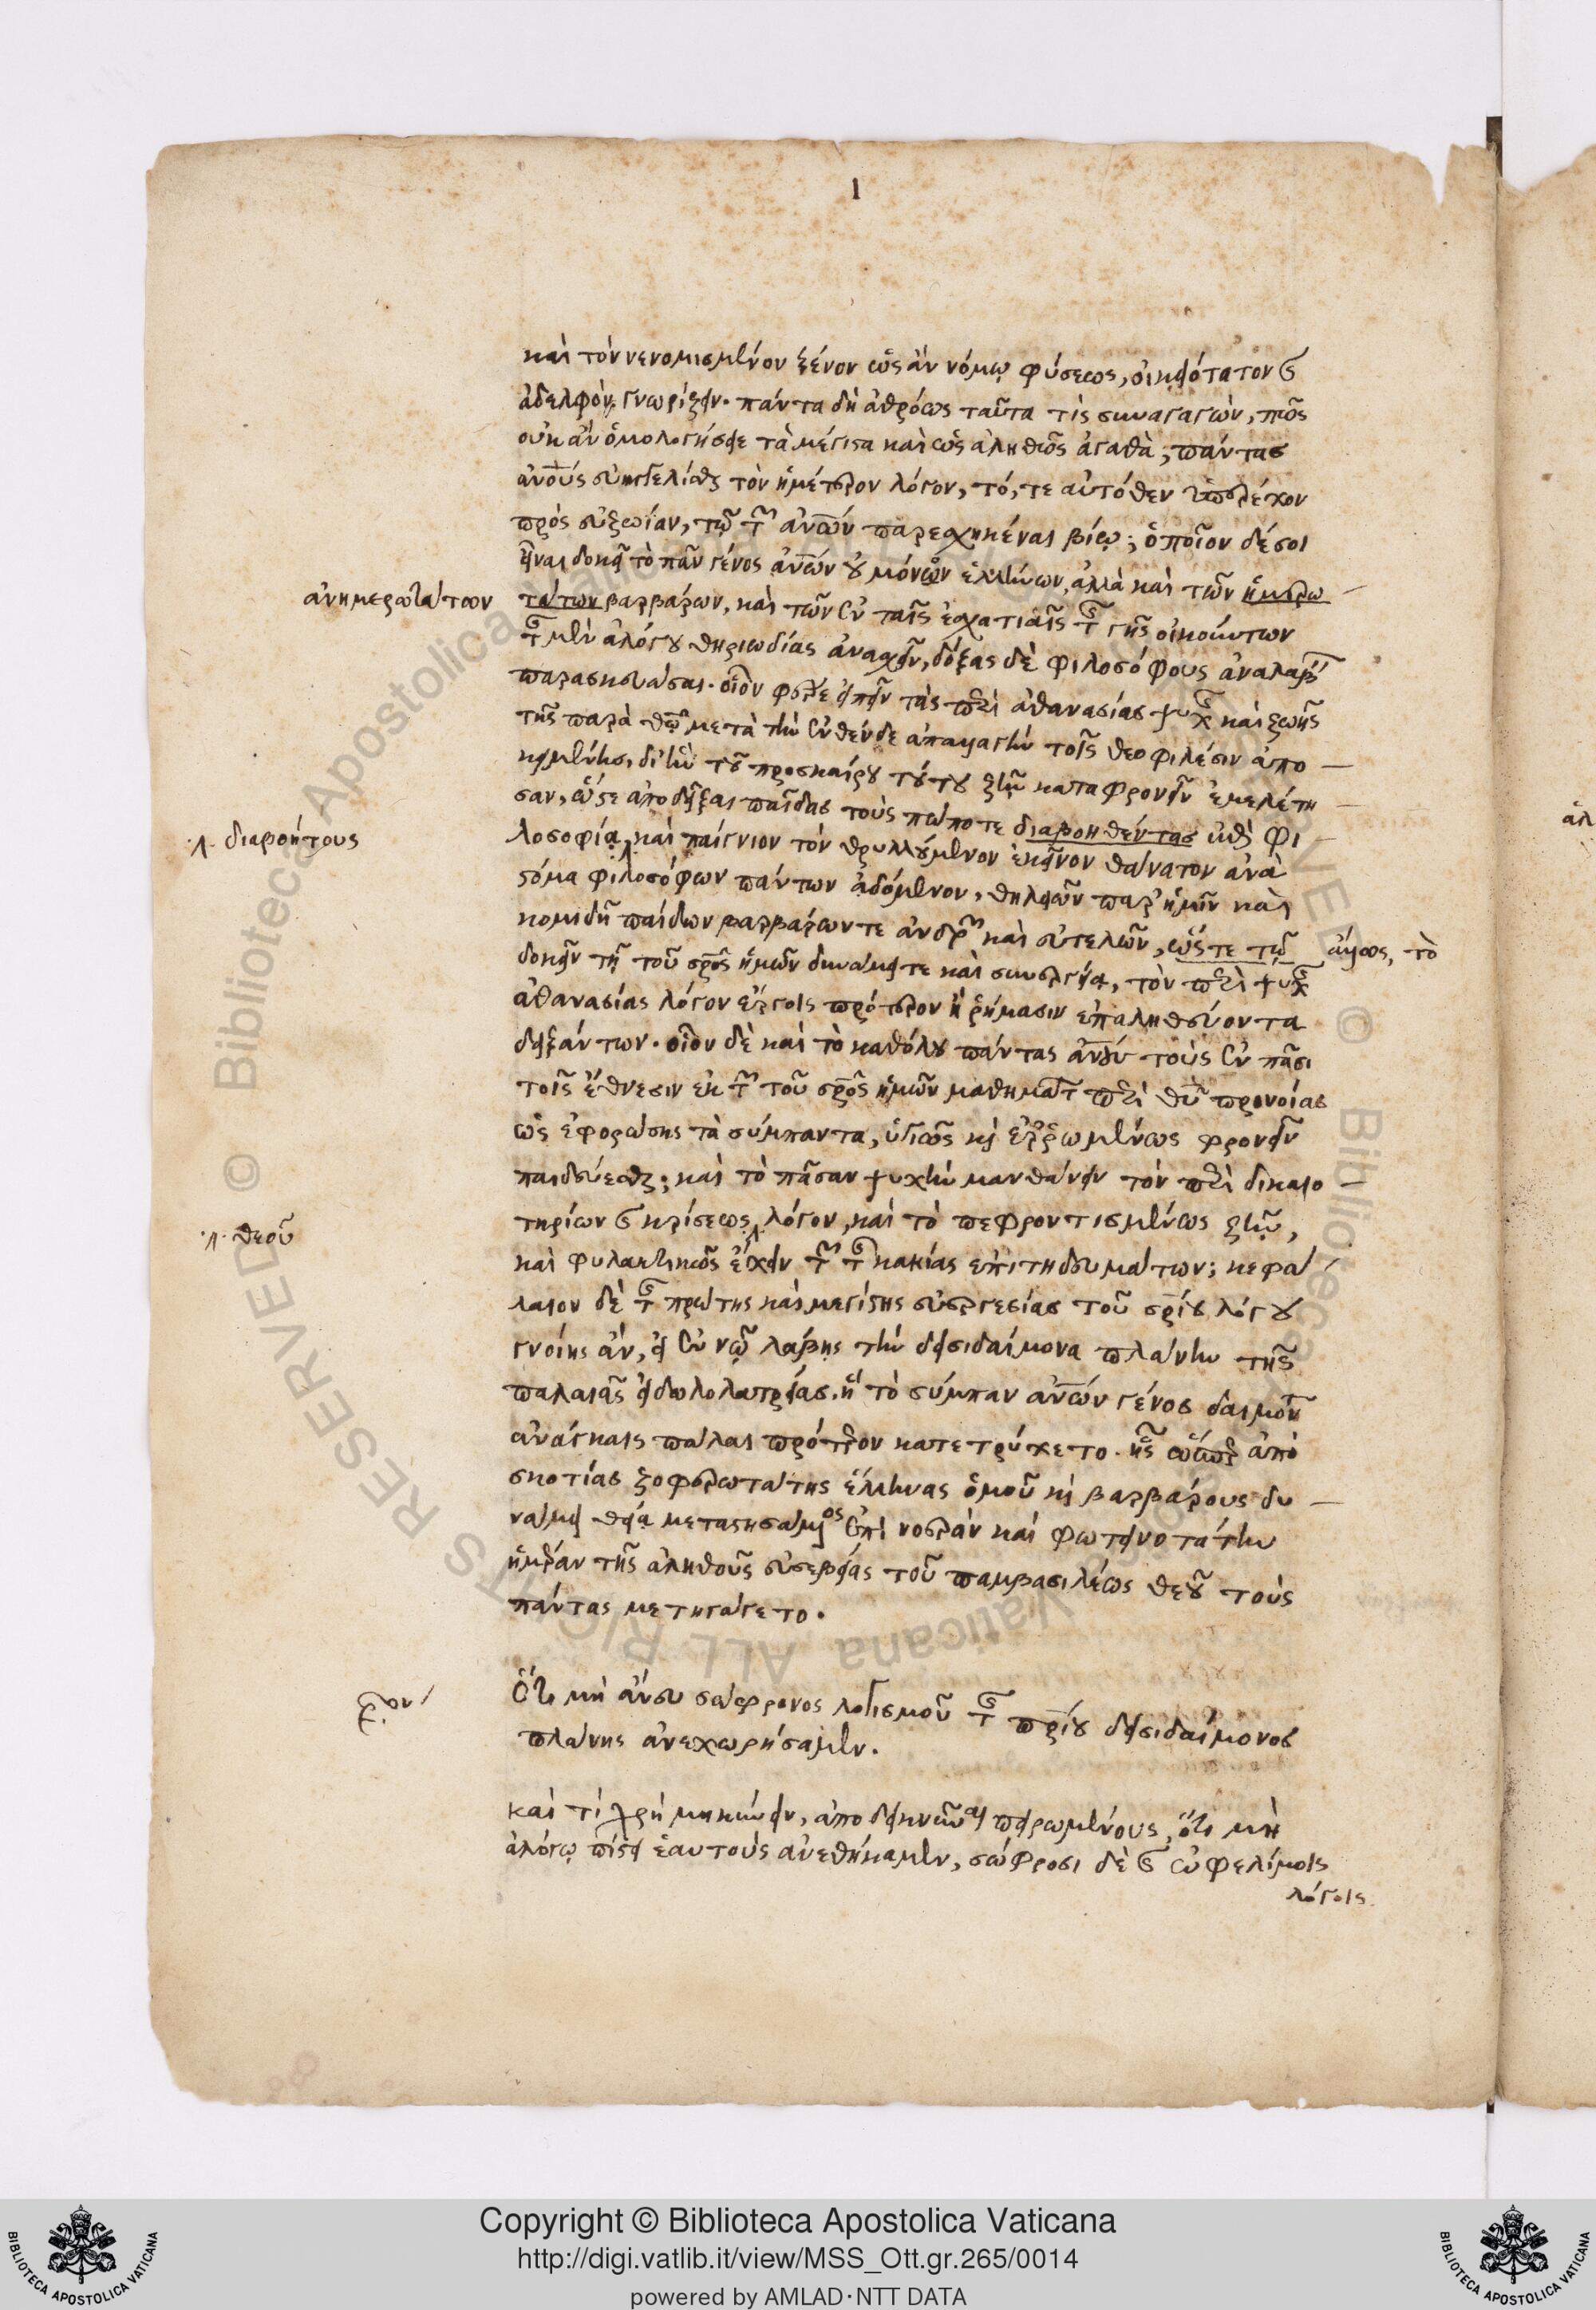 1
καὶ τὸν νενομισμένον ξένον ὡς ἂν νόμῳ φύσεως, οἰκειότατον καὶ
ἀδελφὸν γνωρίζειν. πάντα δὴ ἀθρόως ταῦτα τίς συναγαγὼν, πῶς
οὐκ ἂν ὁμολογήσειε τὰ μέγιστα καὶ ὡς ἀληθῶς ἀγαθὰ; πάντας
ἀνους εὐηγγελίσθαι τὸν ἡμέτερον λόγον, τό, τε αὐτόθεν
πρὸς εὐζωίαν, τῷ τῶν ἀνων παρεσχηκέναι βίῳ; ὁποῖον δέ σοι
εἶναι δοκεῖ τὸ πᾶν γένος ἀνων οὐ μόνων ἑλλήνων, ἀλλὰ καὶ τῶν ἡμερω
τάτων βαρβάρων, καὶ τῶν ἐν ταῖς ἐσχατιαῖς τῆς γῆς οἰκούντων
ἀνημερωτάτων
τῆς μὲν ἀλόγου θηριωδίας ἀνασχεῖν, δόξας δὲ φιλοσόφους ἀναλαβεῖν
παρασκευάσαι. οἷον φέρε εἰπεῖν τὰς περὶ ἀθανασίας ψυχῆς καὶ ζωῆς
τῆς παρὰ θεῷ μετὰ τὴν ἐνθένδε ἀπαλλαγὴν τοῖς θεοφιλέσιν ἀπο
κειμένης, δι' ἣν τοῦ προσκαίρου τούτου ζῆν καταφρονεῖν ἐμελέτη
σαν, ὥστε ἀποδεῖξαι παῖδας τοὺς πώποτε διαβοηθέντας ἐπὶ φι
·λ· διαβοήτους
λοσοφίᾳ, καὶ παίγνιον τὸν θρυλλούμενον ἐκεῖνον θάνατον ἀνὰ
στόμα φιλοσόφων πάντων ἀδόμενον, θηλειῶν παρ' ἡμῖν καὶ
κομιδῆ παίδων βαρβάρων τε ἀνδρῶν καὶ εὐτελῶν, ὥς τε τῷ
ἄλλως, τὸ
δοκεῖν τῇ τοῦ σρος ἡμῶν δυνάμει τε καὶ συνεργείᾳ, τὸν περὶ ψυχῆς
ἀθανασίας λόγον ἔργοις πρότερον ἢ ῥήμασιν ἐπαληθεύοντα
δειξάντων. οἷον δὲ καὶ τὸ καθόλου πάντας ἀνους τοὺς ἐν πᾶσι
τοῖς ἔθνεσιν ἐκ τῶν τοῦ σρος ἡμῶν μαθημάτων περὶ θυ προνοίας
ὡς ἐφορώσης τὰ σύμπαντα, ὑγιῶς καὶ ἐρρωμένως φρονεῖν
παιδεύεσθαι; καὶ τὸ πᾶσαν ψυχὴν μανθάνειν τὸν περὶ δικαιο
τηρίων καὶ κρίσεως λόγον, καὶ τὸ πεφροντισμένως ζῆν,
·λ· θεοῦ
καὶ φυλακτικῶς ἔχειν τῶν τῆς κακίας ἐπιτηδευμάτων; κεφά
λαιον δὲ τῆς πρώτης καὶ μεγίστης εὐεργεσίας τοῦ σρίου λόγου
γνοίης ἂν, εἰ ἐν νῷ λάβῃς τὴν δεισιδαίμονα πλάνην τῆς
παλαιᾶς εἰδωλολατρείας. ᾗ τὸ σύμπαν ἀνων γένος δαιμόνων
ἀνάγκαις πάλαι πρότερον κατετρύχετο. ἧς ὥσπερ ἀπὸ
σκοτίας ζοφερωτάτης ἕλληνας ὁμοῦ καὶ βαρβάρους δυ
νάμει θείᾳ μεταστησάμενος ἐπὶ νοερὰν καὶ φωτεινοτάτην
ἡμέραν τῆς ἀληθοῦς εὐσεβείας τοῦ παμβασιλέως θεοῦ τοὺς
πάντας μετηγάγετο.
Ὅτι μὴ ἄνευ σώφρονος λογισμοῦ τῆς πρίου δεισιδαίμονος
πλάνης ἀνεχωρήσαμεν.
καὶ τί χρὴ μηκύνειν, ἀποδεικνύναι πειρωμένους, ὅτι μὴ
ἀλόγῳ πίστει ἑαυτοὺς ἀνεθήκαμεν, σώφροσι δὲ καὶ ὠφελίμοις
λόγοις
© Biblioteca Apostolica Vaticana ALL RIGHTS RESERVED
Copyright © Biblioteca Apostolica Vaticana
http://digi.vatlib.it/view/MSS_Ott.gr.265/0014
powered by AMLAD·NTT DATA
BIBLIOTECA APOSTOLICA VATICANA
BIBLIOTECA APOSTOLICA VATICANA